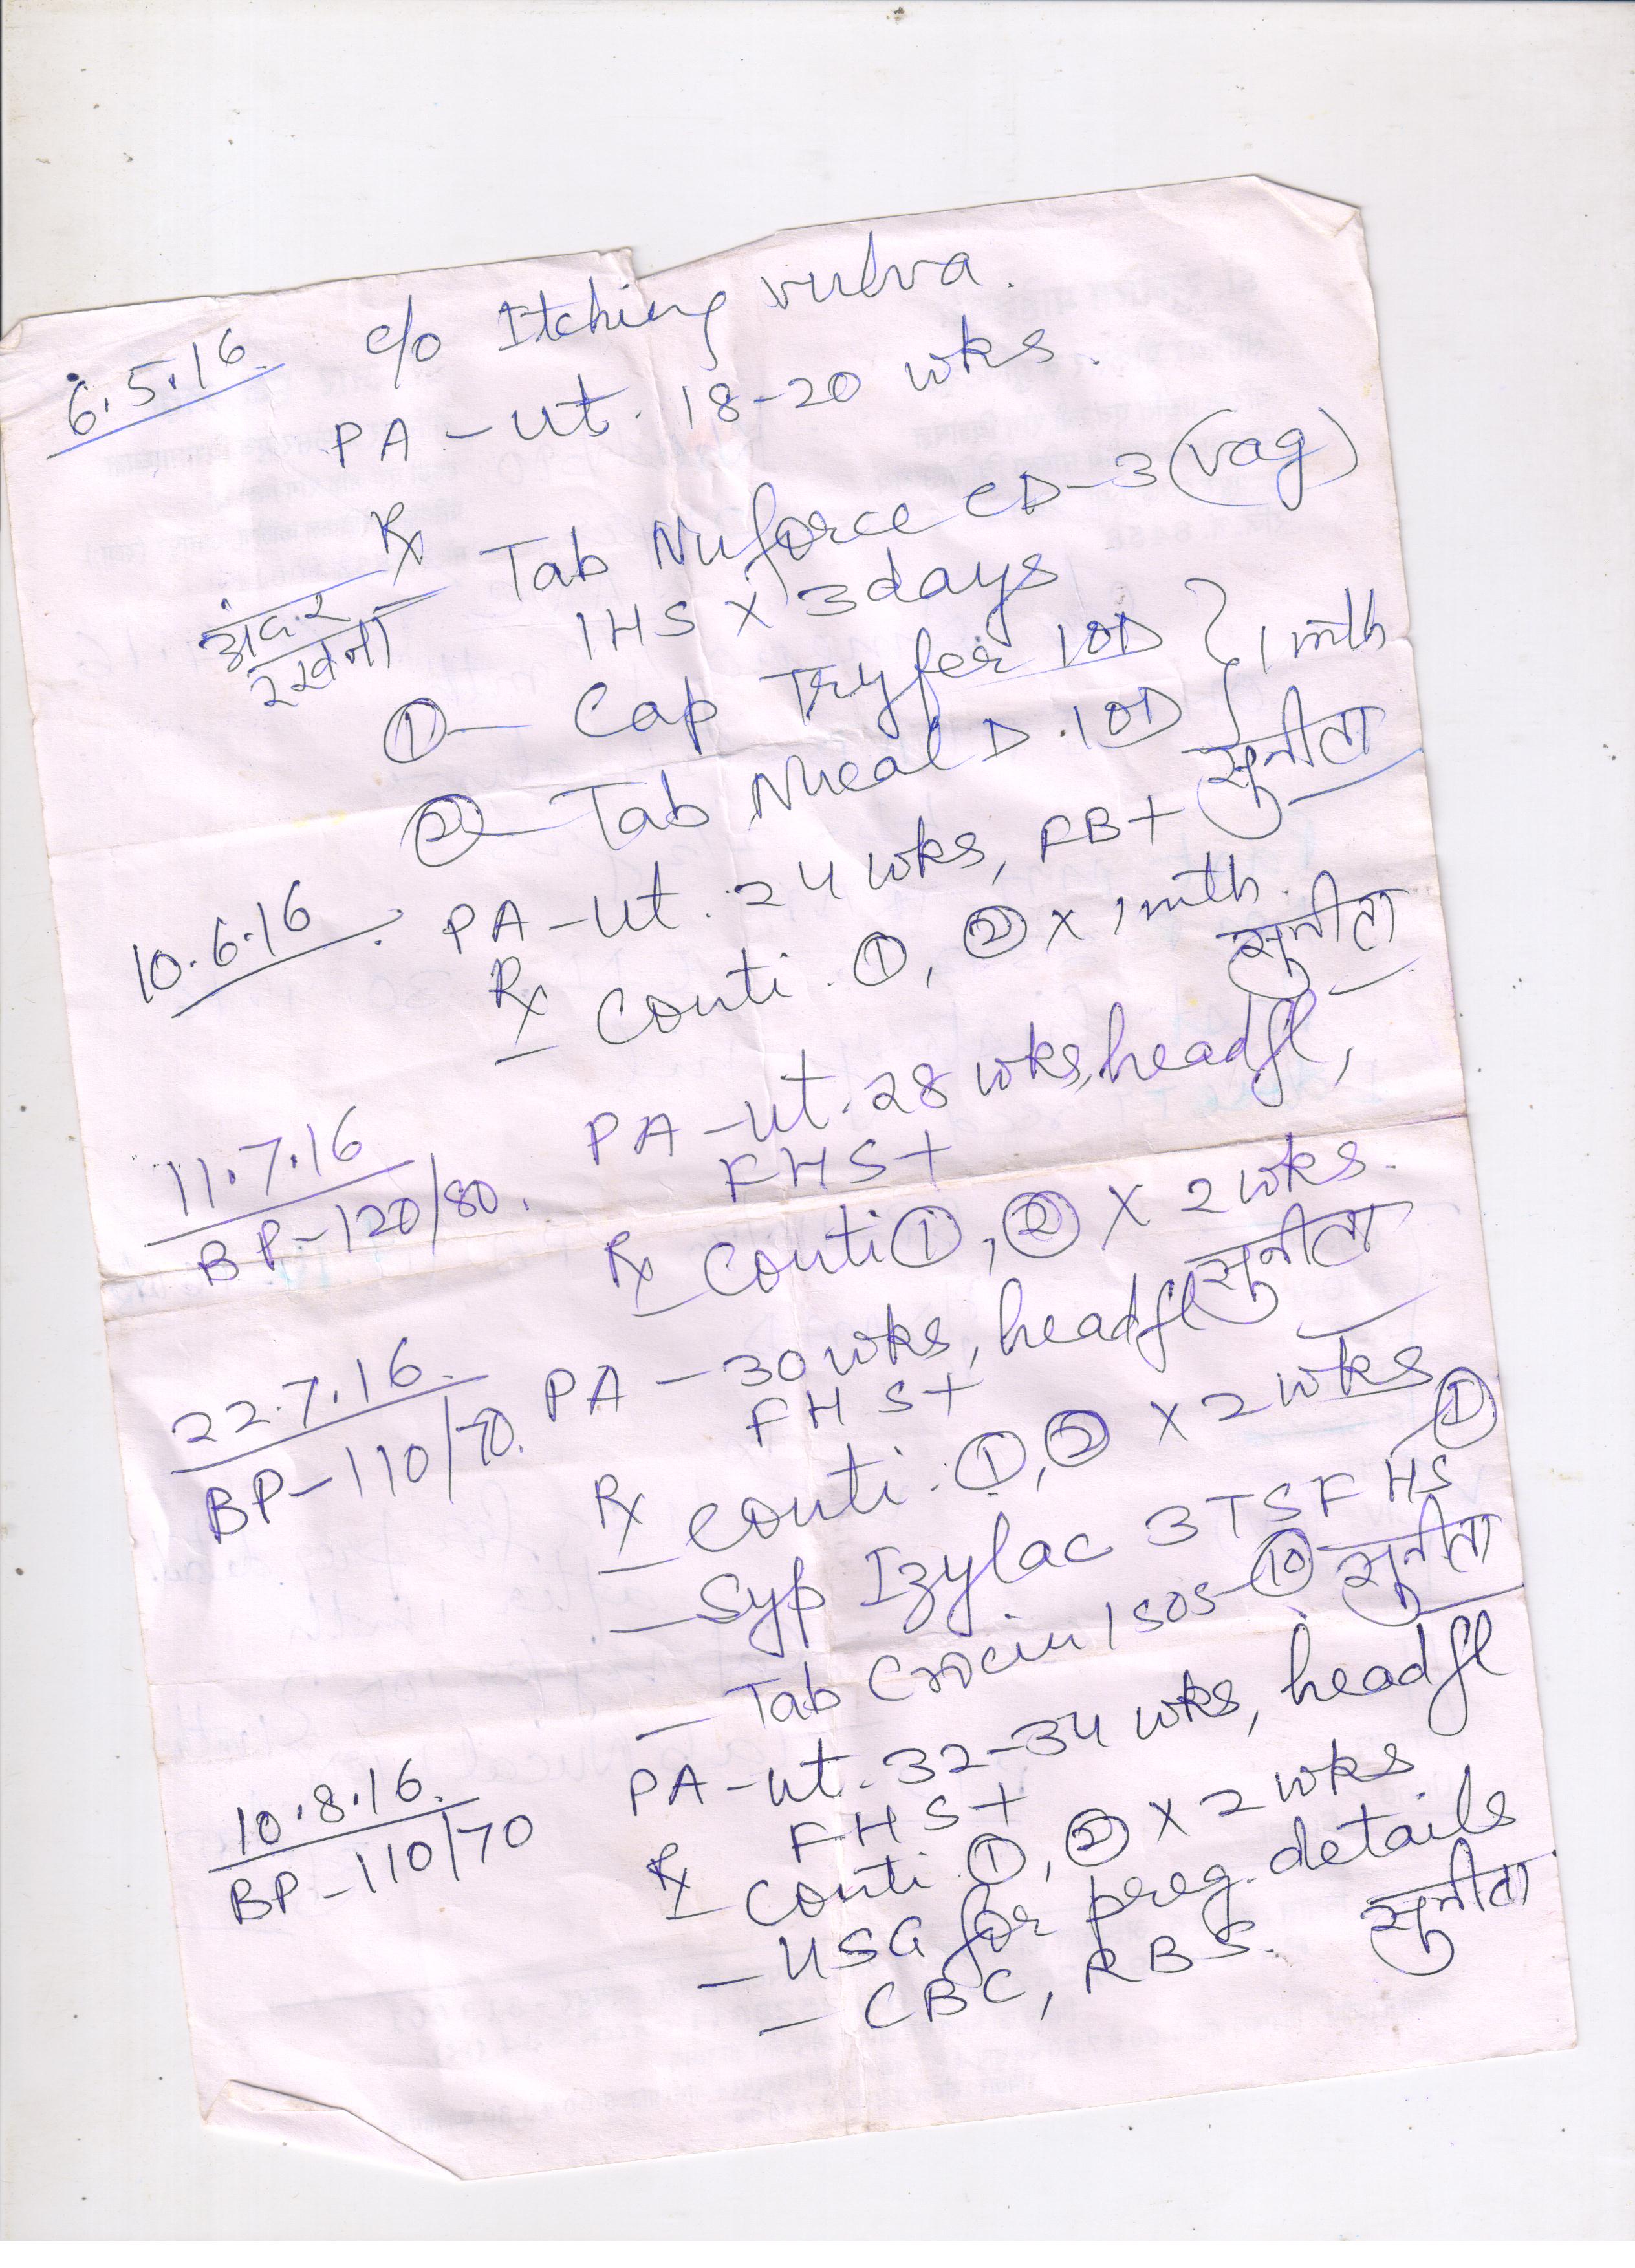 6.5.16 c/o Itching vulva.
PA - Ut. 18-20 wks.
Rx Tab Nuforce CD-3 (vag)
1HS X 3 days
अंदर
रखना
① - Cap Tryfer 1OD } 1 mth
② - Tab Nucal D. 1OD
सुनीता
10.6.16. PA - Ut. 24 wks, FB+
Rx Conti. ①, ② X 1 mth.
सुनीता
11.7.16 PA - Ut. 28 wks, headfl,
BP - 120/80. FHS+
Rx Conti ①, ② X 2 wks.
सुनीता
22.7.16. PA - 30 wks, headfl
BP - 110/70. FHS+
Rx - Conti. ①, ② X 2 wks
- Syp Izylac 3 TSF HS - ①
- Tab Crocin 1 SOS - ⑩
सुनीता
10.8.16. PA - Ut. 32-34 wks, headfl
BP - 110/70 FHS+
Rx - Conti ①, ② X 2 wks
- USG for preg. details
- CBC, RBS.
सुनीता